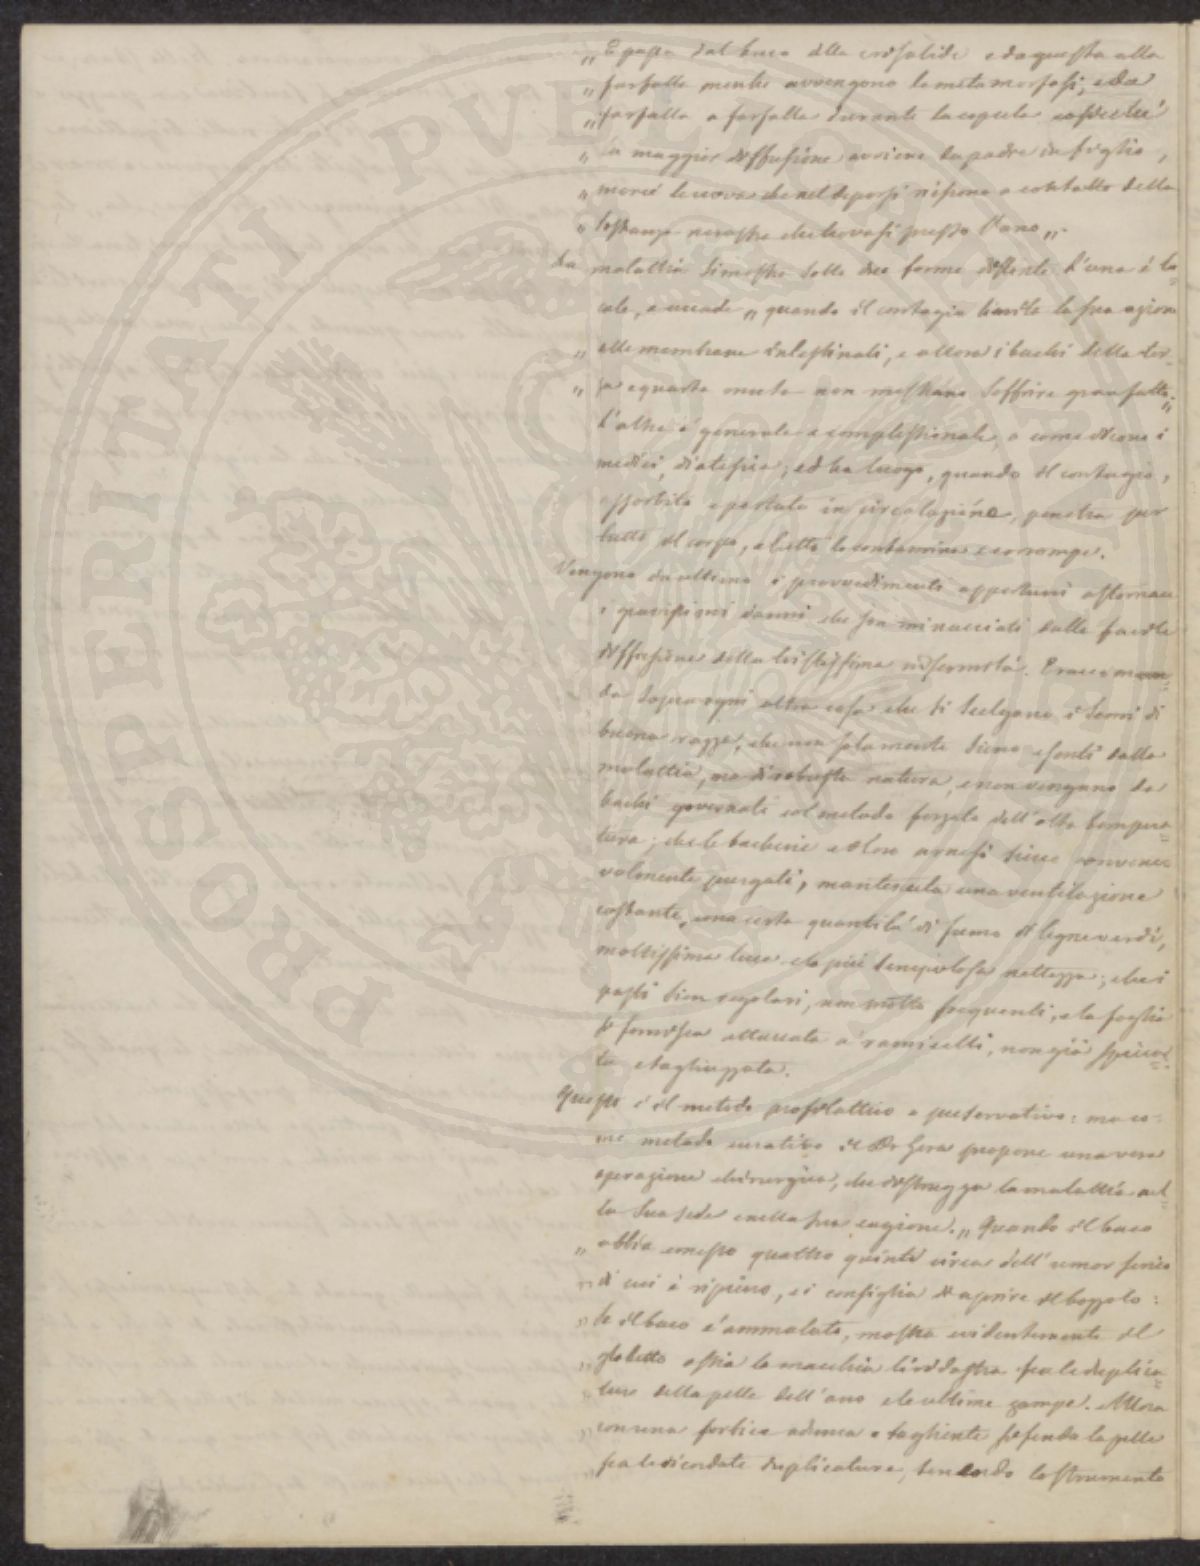 „ E passa dal baco alla crisalide e da questa alla
„ farfalla mentre avvengono le metamorfosi; e da
„ farfalla a farfalla durante la copula cosicché
„ la maggior diffusione avviene da padre in figlio,
„ mercé le uova che nel deporsi vi sono a contatto della
„ sostanza nerastra che trovasi presso l'ano „.
La malattia si mostra sotto due forme distinte. L'una è lo=
cale, e accade „ quando il contagio limita la sua azione
„ alle membrane intestinali, e allora i bachi della ter=
„ za e quarta muta non mostrano soffrire gran fatto; „
l'altra è generale e complessionale, o come dicono i
medici, diatesica; ed ha luogo, quando il contagio,
assorbito e portato in circolazione, penetra per
tutto il corpo, e tutto lo contamina e corrompe.
Vengono da ultimo i provvedimenti opportuni a stornare
i gravissimi danni che fra minacciati dalla facile
diffusione della tristissima infermità. E raccoman=
da sopra ogni altra cosa che si scelgano i semi di
buona razza, che non solamente sieno esenti dalla
malattia, ma di robusta natura, e non vengano da
bachi governati col metodo forzato dell'alta tempera=
tura; che le bacherie e i loro arnesi sieno convene=
volmente purgati, mantenuta una ventilazione
costante, una certa quantità di fumo di legne verdi,
moltissima luce e la più scrupolosa nettezza; che i
pasti sien regolari, non molto frequenti, e la foglia
si fornisca attaccata a' ramicelli, non già spicca=
ta e tagliuzzata.
Questo è il metodo profilattico o preservativo: ma co=
me metodo curativo il Dr Gera propone una vera
operazione chirurgica, che distrugga la malattia nel=
la sua sede e nella sua cagione. „ Quando il baco
„ abbia emesso quattro quinti circa dell'umor serico
„ di cui è ripieno, ei consiglia di aprire il bozzolo:
„ se il baco è ammalato, mostra evidentemente il
„ globetto ossia la macchia lividastra fra le duplica=
„ ture della pelle dell'ano e le ultime zampe. Allora
„ con una forbice adunca e tagliente si fenda la pelle
„ fra le ricordate duplicature, tenendo lo strumento